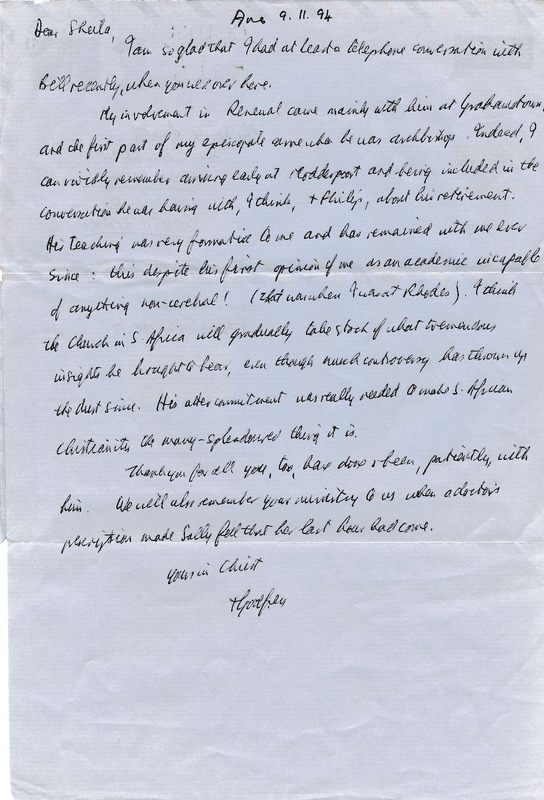 9.11.94
Dear Sheila,
I am so glad that I had at least a telephone conversation with
Bill recently, when you were over here.
My involvement in Renewal came mainly with him at Grahamstown,
and the first part of my episcopate came when he was archbishop. Indeed, I
can vividly remember arriving early at Modderpoort and being included in the
conversation he was having with, I think, + Philip, about his retirement.
His teaching was very formative to me and has remained with me ever
since: this despite his first opinion of me as an academic incapable
of anything non-cerebral! (That was when I was at Rhodes). I think
the Church in S Africa will gradually take stock of what tremendous
insights he brought to bear, even though much controversy has thrown up
the dust since. His utter commitment was really needed to make S. African
Christianity the many-splendoured thing it is.
Thank you for all you, too, have done & been, patiently, with
him. We will also remember your ministry to us when a doctor's
perscription made Sally fell that her last hour had come.
Yours in Christ
+Godfrey